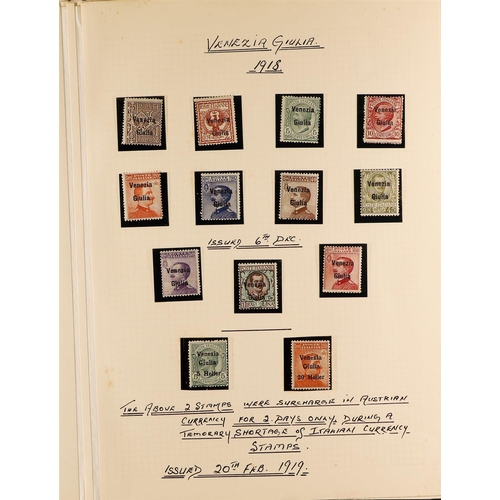 VENEZIA GIULIA.
1918.
Venezia Giulia
Venezia Giulia
Venezia Giulia
Venezia Giulia
Venezia Giulia
Venezia Giulia
Venezia Giulia
Venezia Giulia
ISSUED 6TH DEC.
Venezia Giulia
Venezia Giulia
Venezia Giulia
Venezia Giulia 5 Heller
Venezia Giulia 20 Heller
THE ABOVE 2 STAMPS WERE SURCHARGE IN AUSTRIAN
CURRENCY FOR 2 DAYS ONLY, DURING A
TEMORARY SHORTAGE OF ITALIAN CURRENCY
STAMPS.
ISSUED 20TH FEB. 1919.